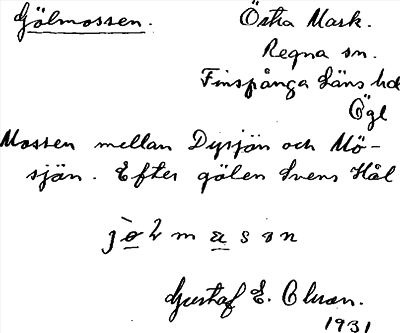 Gölmossen. Östra Mark.
Regna sn.
Finspånga Läns hd
Ögl
Mossen mellan Dysjön och Mö-
sjön. Efter gölen Svens Hål
Gustaf E. Olson.
1931